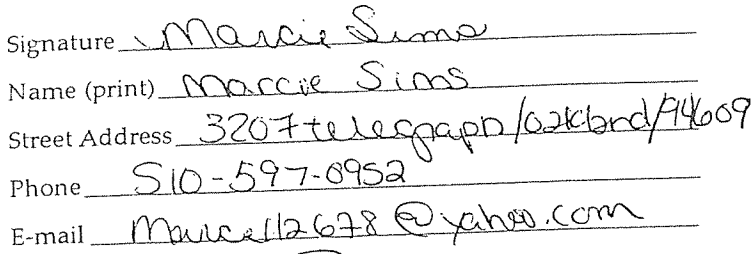 Signature Marcie Sims
Name (print) Marcie Sims
Street Address 3207 telegraph/oakland/94609
Phone 510-597-0952
E-mail @yahoo.com